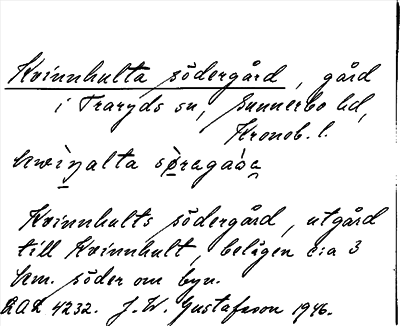 Kvinnhulta södergård, gård
i Traryds sn, Sunnerbo hd,
Kronob. l.
kwiŋalta søragaɷa
Kvinnhults södergård, utgård
till Kvinnhult, belägen c:a 3
km. söder om byn.
4232. J. W. Gustafsson 1946.